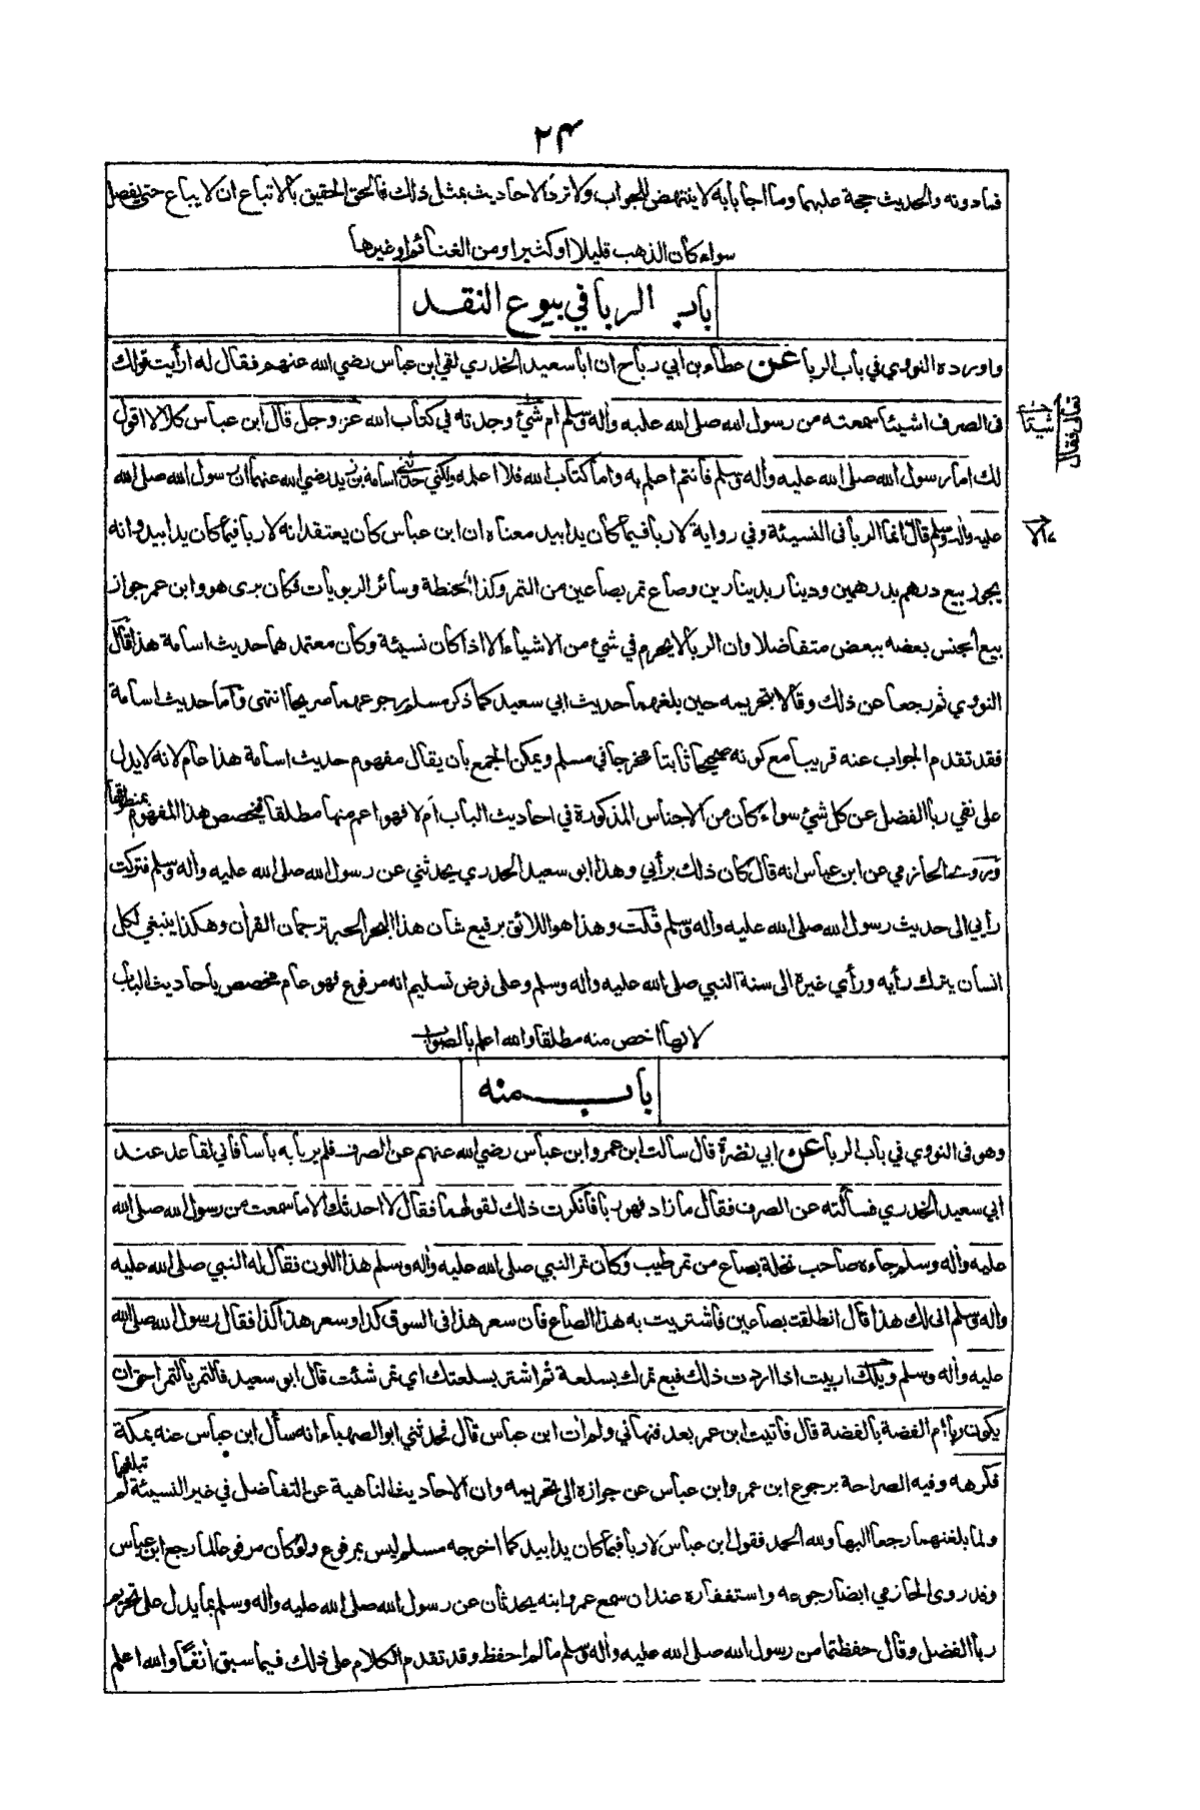 ٢٤
فمادونه والحديث حجة عليهما وما اجابا به لا ينتهض للجواب ولا ترد الاحاديث بمثل ذلك فالحق الحقيق بالاتباع ان لا يباع حتى يفصل
سواء كان الذهب قليلا او كثيرا ومن الغنائم او غيرها
باب الربا في بيوع النقد
واورده النووي في باب الربا عن عطاء بن ابي رباح ان ابا سعيد الخدري لقي ابن عباس رضي الله عنهم فقال له ارأيت قولك
فى الصرف اشيئا سمعته من رسول الله صلى الله عليه وأله وسلم ام شئ وجدته في كتاب الله عز وجل قال ابن عباس كلا لا اقول
شيئا
تعالى فقال
لك اما رسول الله صلى الله عليه وأله وسلم فأنتم اعلم به واما كتاب الله فلا اعلمه ولكني حدثني اسامة بن زيد رضي الله عنهما ان رسول الله صلى الله
عليه وأله وسلم قال انما الربا فى النسيئة وفي رواية لا ربا فيما كان يدا بيد معناه ان ابن عباس كان يعتقد انه لا ربا فيما كان يدا بيد وانه
الا
يجوز بيع درهم بدرهمين ودينار بدينارين وصاع تمر بصاعين من التمر وكذا الحنطة وسائر الربويات فكان يرى هو وابن عمر جواز
بيع الجنس بعضه ببعض متفاضلا وان الربا لا يحرم في شئ من الاشياء الا اذا كان نسيئة وكان معتمدهما حديث اسامة هذا قال
النووي ثم رجعا عن ذلك وقالا بتحريمه حين بلغهما حديث ابي سعيد كما ذكر مسلم رجوعهما صريحا انتهى واما حديث اسامة
فقد تقدم الجواب عنه قريبا مع كونه صحيحا ثابتا مخرجا في مسلم ويمكن الجمع بأن يقال مفهوم حديث اسامة هذا عام لانه لا يدل
على نفي ربا الفضل عن كل شئ سواء كان من الاجناس المذكورة في احاديث الباب ام لا فهو اعم منها مطلقا فيخصص هذا المفهوم بمنطوقها
وروى الحازمي عن ابن عباس انه قال كان ذلك برأيي وهذا ابو سعيد الخدري يحدثني عن رسول الله صلى الله عليه وأله وسلم فتركت
رأيي الى حديث رسول الله صلى الله عليه وأله وسلم قلت وهذا هو اللائق برفيع شأن هذا البحر الحبر ترجمان القرأن وهكذا ينبغي لكل
انسان يترك رأيه ورأي غيره الى سنة النبي صلى الله عليه وأله وسلم وعلى فرض تسليم انه مرفوع فهو عام مخصص باحاديث الباب
لانها اخص منه مطلقا والله اعلم بالصواب
باب منه
وهو فى النووي في باب الربا عن ابي نضرة قال سألت ابن عمر وابن عباس رضي الله عنهم عن الصرف فلم يريا به بأسا فاني لقاعد عند
ابي سعيد الخدري فسألته عن الصرف فقال ما زاد فهو ربا فأنكرت ذلك لقولهما فقال لا احدثك الا ما سمعت من رسول الله صلى الله
عليه وأله وسلم جاءه صاحب نخلة بصاع من تمر طيب وكان تمر النبي صلى الله عليه وأله وسلم هذا اللون فقال له النبي صلى الله عليه
وأله وسلم انى لك هذا قال انطلقت بصاعين فاشتريت به هذا الصاع فان سعر هذا فى السوق كذا وسعر هذا كذا فقال رسول الله صلى الله
عليه وأله وسلم ويلك اربيت اذا اردت ذلك فبع تمرك بسلعة ثم اشتر بسلعتك اي تمر شئت قال ابو سعيد فالتمر بالتمر احق ان
يكون ربا ام الفضة بالفضة قال فأتيت ابن عمر بعد فنهاني ولم أت ابن عباس قال فحدثني ابو الصهباء انه سأل ابن عباس عنه بمكة
فكرهه وفيه الصراحة برجوع ابن عمر وابن عباس عن جوازه الى تحريمه وان الاحاديث الناهية عن التفاضل في غير النسيئة لم تبلغهما
ولما بلغتهما رجعا اليها ولله الحمد فقول ابن عباس لا ربا فيما كان يدا بيد كما اخرجه مسلم ليس بمرفوع ولو كان مرفوعا لما رجع ابن عباس
وقد روى الحازمي ايضا رجوعه واستغفاره عند ان سمع عمر وابنه يحدثان عن رسول الله صلى الله عليه وأله وسلم بما يدل على تحريم
ربا الفضل وقال حفظتما من رسول الله صلى الله عليه وأله وسلم ما لم احفظ وقد تقدم الكلام على ذلك فيما سبق أنفا والله اعلم